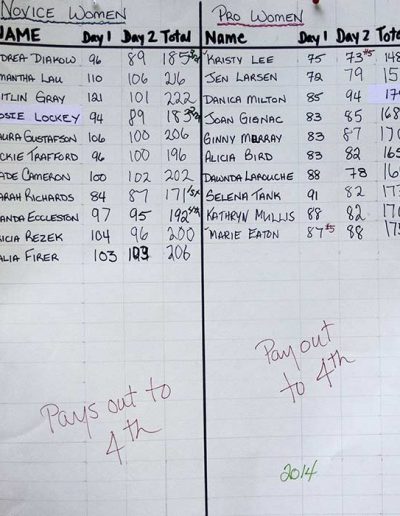 NOVICE WOMEN
NAME Day 1 Day 2 Total
DREA DIAKOW 96 89 185
MANTHA LAU 110 106 216
AITLIN GRAY 121 101 222
OSIE LOCKEY 94 89 183
AURA GUSTAFSON 106 100 206
CKIE TRAFFORD 96 100 196
ADE CAMERON 100 102 202
ARAH RICHARDS 84 87 171
ANDA ECCLESTON 97 95 192
RICIA REZEK 104 96 200
ALIA FIRER 103 103 206
Pays out to
4th
PRO WOMEN
Name Day 1 Day 2 Total
KRISTY LEE 75 73 #5 148
JEN LARSEN 72 79 15
DANICA MILTON 85 94 17
JOAN GIGNAC 83 85 168
GINNY MURRAY 83 87 170
ALICIA BIRD 83 82 165
DAWNDA LAROUCHE 88 78 16
SELENA TANK 91 82 173
KATHRYN MULLIS 88 82 170
MARIE EATON 87 #5 88 175
Pay out
to 4th
2014